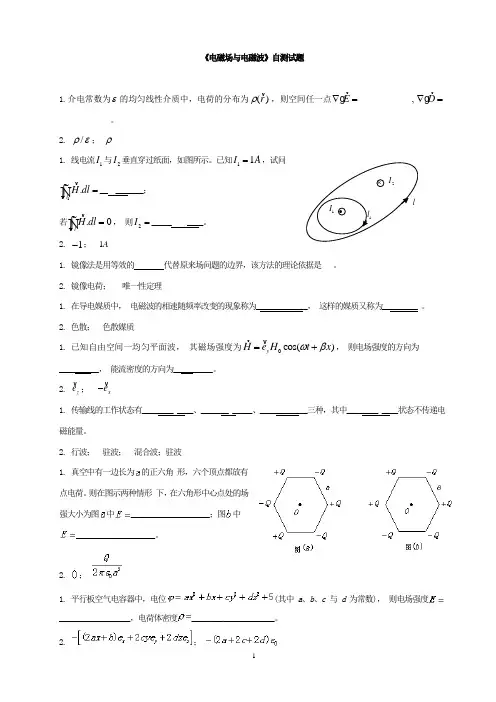 《电磁场与电磁波》自测试题
1.介电常数为 ε 的均匀线性介质中，电荷的分布为 ρ(r)，则空间任一点 ∇gE = ____________ , ∇gD =
____________。
2. ρ/ε； ρ
1. 线电流 I₁ 与 I₂ 垂直穿过纸面，如图所示。已知 I₁ = 1A，试问
H.dl = __ _______；
l₁
若 H.dl = 0， 则 I₂ = _____ ____。
I₂
I₁
l₁
l
2. −1； 1A
1. 镜像法是用等效的 _______ 代替原来场问题的边界，该方法的理论依据是 _。
2. 镜像电荷； 唯一性定理
1. 在导电媒质中， 电磁波的相速随频率改变的现象称为 ____________， 这样的媒质又称为 _________ 。
2. 色散； 色散媒质
1. 已知自由空间一均匀平面波， 其磁场强度为 H = e_y H₀ cos(ωt + βx)， 则电场强度的方向为
__________， 能流密度的方向为 _________。
2. e_z； −e_x
1. 传输线的工作状态有 ________ ____、 _______ _____、 ____________ 三种，其中 ________ ____ 状态不传递电
磁能量。
2. 行波； 驻波； 混合波；驻波
1. 真空中有一边长为 a 的正六角 形，六个顶点都放有
点电荷。则在图示两种情形 下，在六角形中心点处的场
强大小为图 a 中 E = ____________________；图 b 中
E = ____________________。
+Q −Q
a
−Q O +Q
+Q −Q
图(a)
+Q −Q
a
+Q O +Q
−Q −Q
图(b)
2. 0； Q/2πε₀a²
1. 平行板空气电容器中，电位 φ = ax² + bx + cy² + dz² + 5 (其中 a、b、c 与 d 为常数)， 则电场强度 E =
__________________，电荷体密度 ρ = _____________________。
2. −[(2ax + b)e_x + 2cye_y + 2dze_z]； −(2a + 2c + 2d)ε₀
1